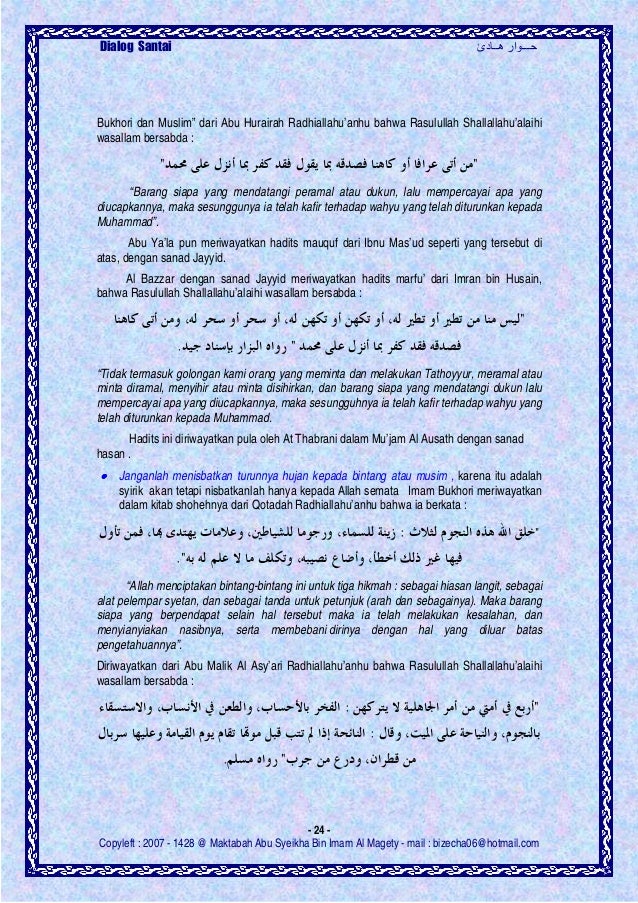 Dialog Santai حـــوار هــادئ
Bukhori dan Muslim” dari Abu Hurairah Radhiallahu’anhu bahwa Rasulullah Shallallahu’alaihi
wasallam bersabda :
"من أتى عرافا أو كاهنا فصدقه بما يقول فقد كفر بما أنزل على محمد"
“Barang siapa yang mendatangi peramal atau dukun, lalu mempercayai apa yang
diucapkannya, maka sesunggunya ia telah kafir terhadap wahyu yang telah diturunkan kepada
Muhammad”.
Abu Ya’la pun meriwayatkan hadits mauquf dari Ibnu Mas’ud seperti yang tersebut di
atas, dengan sanad Jayyid.
Al Bazzar dengan sanad Jayyid meriwayatkan hadits marfu’ dari Imran bin Husain,
bahwa Rasulullah Shallallahu’alaihi wasallam bersabda :
"ليس منا من تطير أو تطير له، أو تكهن أو تكهن له، أو سحر أو سحر له، ومن أتى كاهنا
فصدقه فقد كفر بما أنزل على محمد " رواه البزار بإسناد جيد.
“Tidak termasuk golongan kami orang yang meminta dan melakukan Tathoyyur, meramal atau
minta diramal, menyihir atau minta disihirkan, dan barang siapa yang mendatangi dukun lalu
mempercayai apa yang diucapkannya, maka sesungguhnya ia telah kafir terhadap wahyu yang
telah diturunkan kepada Muhammad.
Hadits ini diriwayatkan pula oleh At Thabrani dalam Mu’jam Al Ausath dengan sanad
hasan .
• Janganlah menisbatkan turunnya hujan kepada bintang atau musim , karena itu adalah
syirik akan tetapi nisbatkanlah hanya kepada Allah semata Imam Bukhori meriwayatkan
dalam kitab shohehnya dari Qotadah Radhiallahu’anhu bahwa ia berkata :
"خلق الله هذه النجوم لثلاث : زينة للسماء، ورجوما للشياطين، وعلامات يهتدى بها، فمن تأول
فيها غير ذلك أخطأ، وأضاع نصيبه، وتكلف ما لا علم له به".
“Allah menciptakan bintang-bintang ini untuk tiga hikmah : sebagai hiasan langit, sebagai
alat pelempar syetan, dan sebagai tanda untuk petunjuk (arah dan sebagainya). Maka barang
siapa yang berpendapat selain hal tersebut maka ia telah melakukan kesalahan, dan
menyianyiakan nasibnya, serta membebani dirinya dengan hal yang diluar batas
pengetahuannya”.
Diriwayatkan dari Abu Malik Al Asy’ari Radhiallahu’anhu bahwa Rasulullah Shallallahu’alaihi
wasallam bersabda :
"أربع في أمتي من أمر الجاهلية لا يتركهن : الفخر بالأحساب، والطعن في الأنساب، والاستسقاء
بالنجوم، والنياحة على الميت، وقال : النائحة إذا لم تتب قبل موتها تقام يوم القيامة وعليها سربال
من قطران، ودرع من جرب" رواه مسلم.
- 24 -
Copyleft : 2007 - 1428 @ Maktabah Abu Syeikha Bin Imam Al Magety - mail : bizecha06@hotmail.com